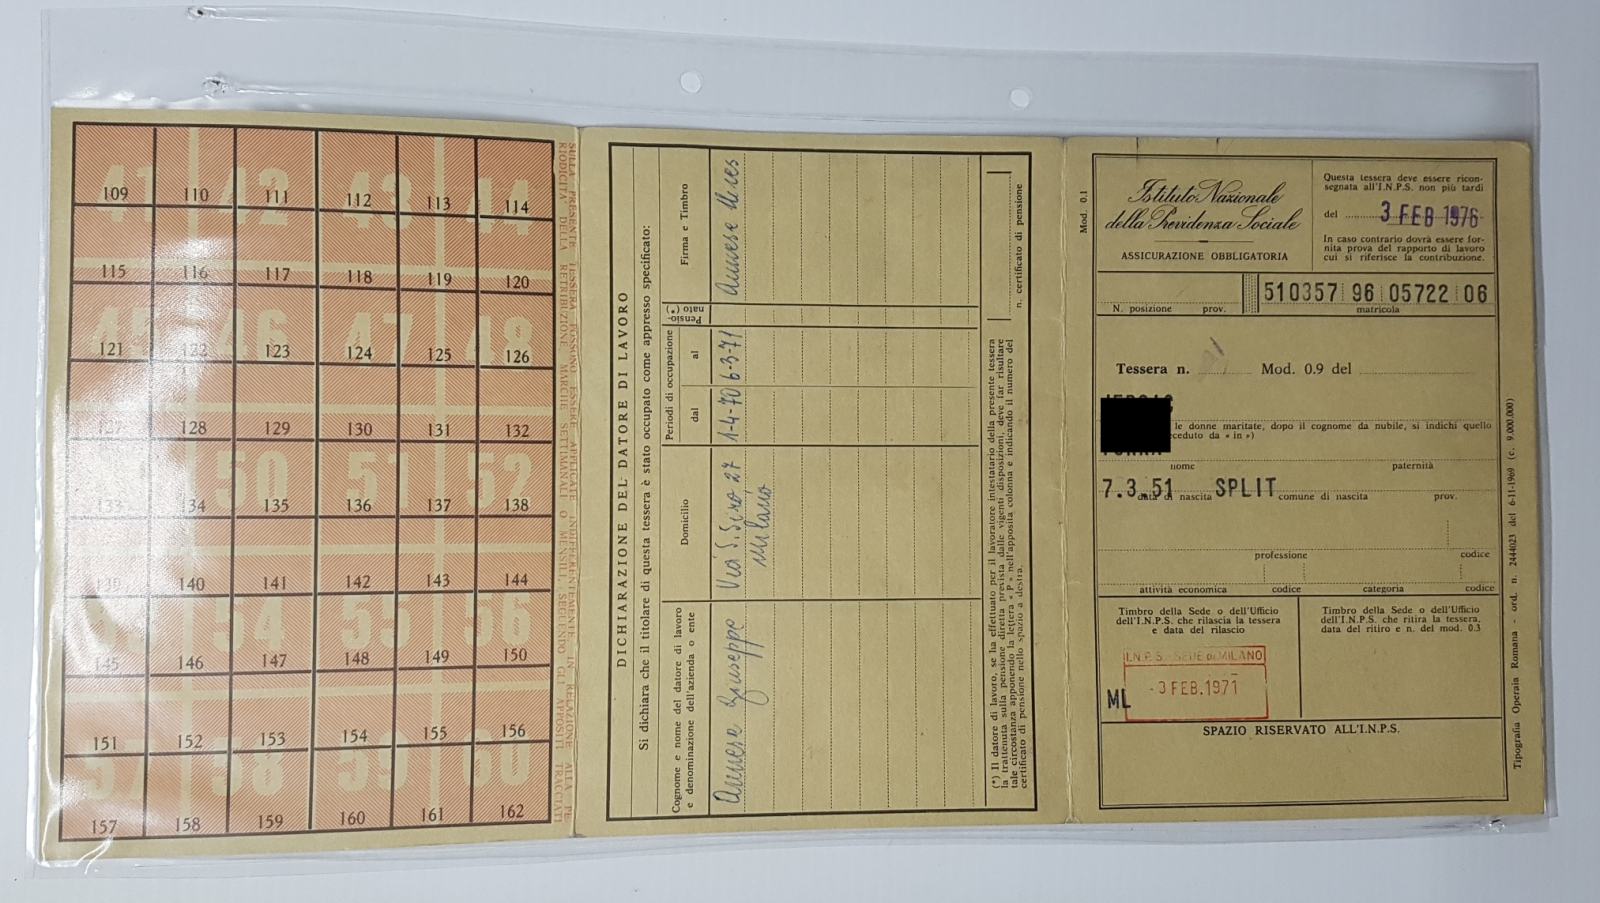 109 110 111 112 113 114
115 116 117 118 119 120
121 122 123 124 125 126
127 128 129 130 131 132
133 134 135 136 137 138
139 140 141 142 143 144
145 146 147 148 149 150
151 152 153 154 155 156
157 158 159 160 161 162
41 42 43 44
45 46 47 48
50 51 52
54 55 56
57 58 59 60
SULLA PRESENTE TESSERA POSSONO ESSERE APPLICATE INDIFFERENTEMENTE, IN RELAZIONE ALLA PE-
RIODICITÀ DELLA RETRIBUZIONE, MARCHE SETTIMANALI O MENSILI, SEGUENDO GLI APPOSITI TRACCIATI
DICHIARAZIONE DEL DATORE DI LAVORO
Si dichiara che il titolare di questa tessera è stato occupato come appresso specificato:
Cognome e nome del datore di lavoro
e denominazione dell'azienda o ente
Domicilio
Periodi di occupazione
dal
al
Pensio-
nato (*)
Firma e Timbro
Giuseppe
Via
27
Milano
1-4-70
6-3-71
(*) Il datore di lavoro, se ha effettuato per il lavoratore intestatario della presente tessera
la trattenuta sulla pensione diretta prevista dalle vigenti disposizioni, deve far risultare
tale circostanza apponendo la lettera « P » nell'apposita colonna e indicando il numero del
certificato di pensione nello spazio a destra.
n. certificato di pensione
Mod. 0.1
Istituto Nazionale
della Previdenza Sociale
ASSICURAZIONE OBBLIGATORIA
Questa tessera deve essere ricon-
segnata all'I.N.P.S. non più tardi
del 3 FEB 1976
In caso contrario dovrà essere for-
nita prova del rapporto di lavoro
cui si riferisce la contribuzione.
510357 96 05722 06
N. posizione prov. matricola
Tessera n. Mod. 0.9 del
le donne maritate, dopo il cognome da nubile, si indichi quello
ceduto da « in »)
nome paternità
7.3.51 SPLIT
data di nascita comune di nascita prov.
professione codice
attività economica codice categoria codice
Timbro della Sede o dell'Ufficio
dell'I.N.P.S. che rilascia la tessera
e data del rilascio
Timbro della Sede o dell'Ufficio
dell'I.N.P.S. che ritira la tessera,
data del ritiro e n. del mod. 0.3
I.N.P.S. - SEDE di MILANO
- 3 FEB. 1971
ML
SPAZIO RISERVATO ALL'I.N.P.S.
Tipografia Operaia Romana - ord. n. 244023 del 6-11-1969 (c. 9.000.000)